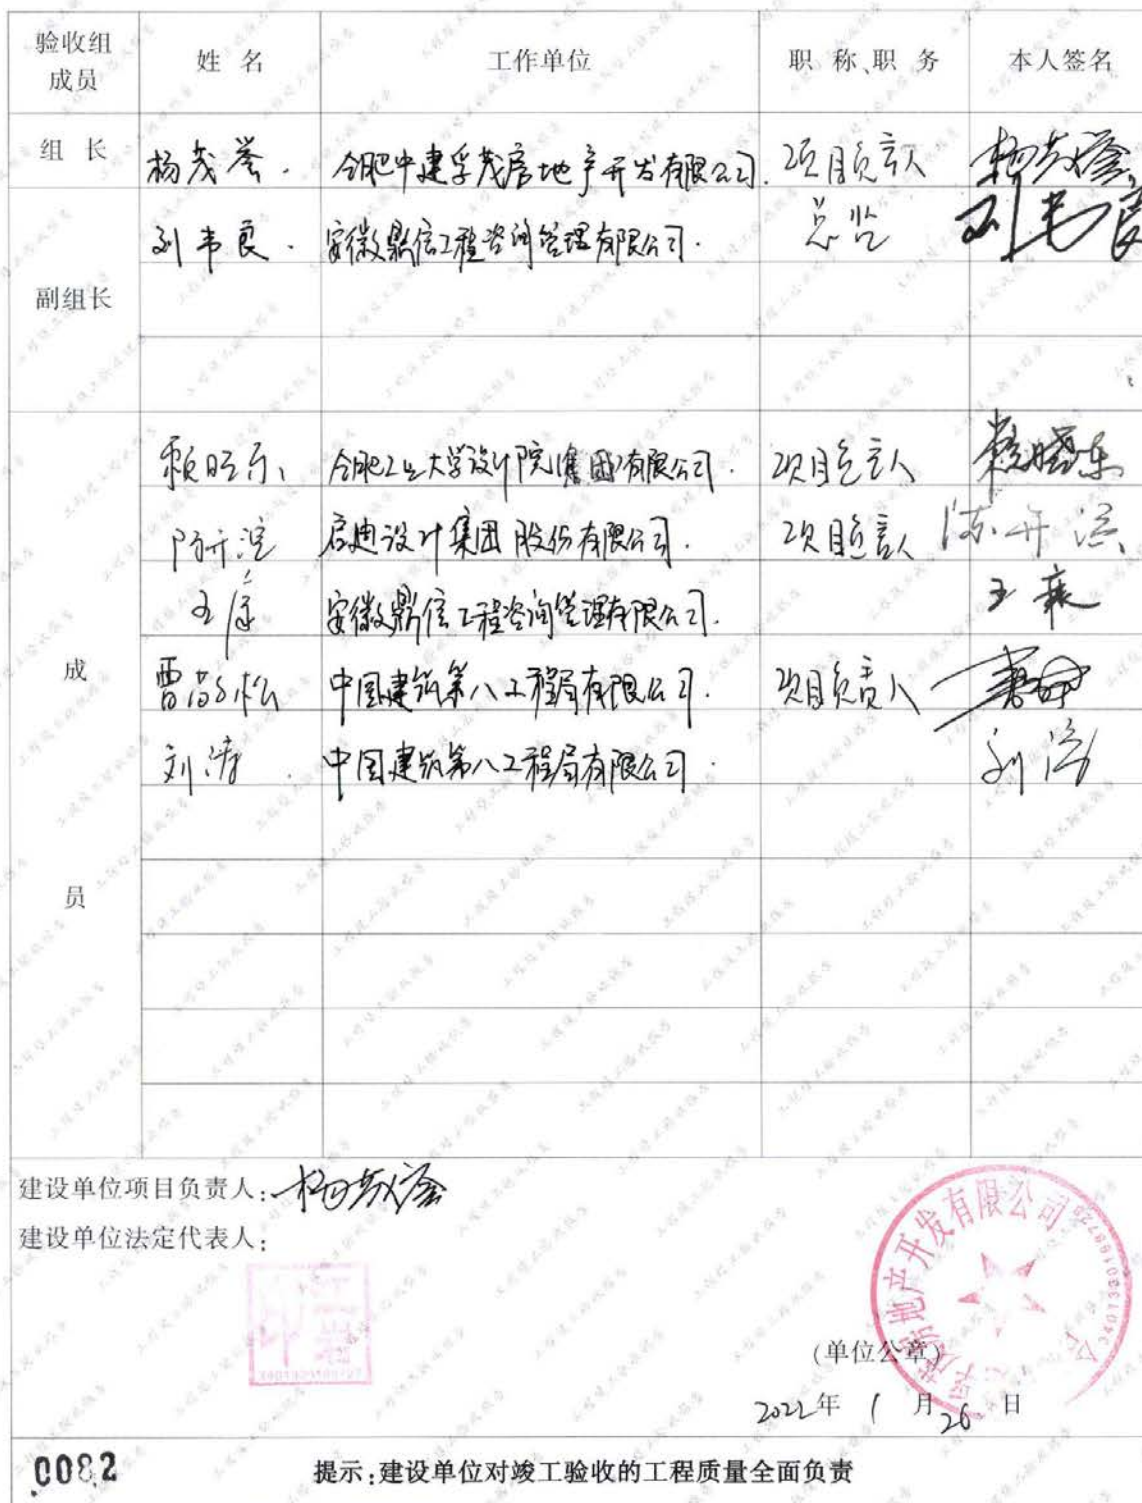 验收组成员 姓 名 工作单位 职 称、职 务 本人签名
组 长 杨茂誉. 合肥中建孚茂房地产开发有限公司. 项目负责人 杨茂誉
刘韦良. 安徽鼎信工程咨询管理有限公司. 总监 刘韦良
副组长
合肥工业大学设计院(集团)有限公司. 项目负责人
启迪设计集团股份有限公司. 项目负责人
王康 安徽鼎信工程咨询管理有限公司. 王康
成 中国建筑第八工程局有限公司. 项目负责人
刘涛. 中国建筑第八工程局有限公司. 刘涛
员
建设单位项目负责人:杨茂誉
建设单位法定代表人:
房地产开发有限公司
(单位公章)
2022年 1 月 26 日
0082 提示:建设单位对竣工验收的工程质量全面负责